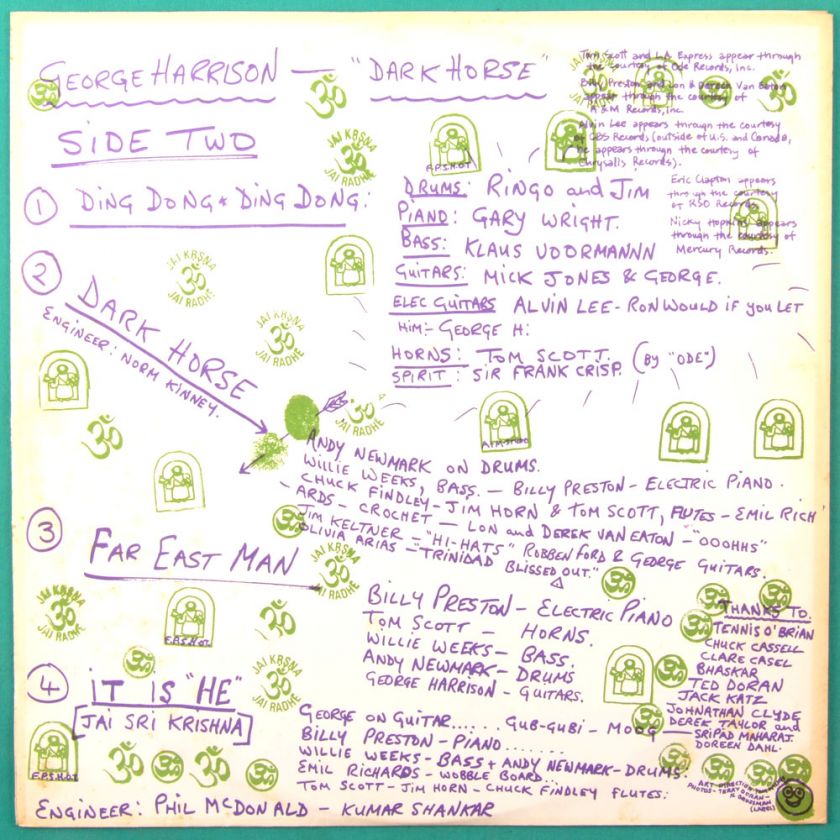 GEORGE HARRISON — "DARK HORSE"
SIDE TWO
Tom Scott and L.A. Express appear through
the courtesy of Ode Records, inc.
Billy Preston and Lon & Dereck Van Eaton
appear through the courtesy of
A & M Records, inc.
Alvin Lee appears through the courtesy
of CBS Records, (outside of U.S. and Canada,
he appears through the courtesy of
Chrysalis Records).
Eric Clapton appears
through the courtesy
of RSO Records.
Nicky Hopkins appears
through the courtesy of
Mercury Records.
① DING DONG * DING DONG:
DRUMS: RINGO and JIM
PIANO: GARY WRIGHT.
BASS: KLAUS VOORMANNN
GUITARS: MICK JONES & GEORGE.
ELEC GUITARS ALVIN LEE - RON WOULD IF YOU LET
HIM:- GEORGE H:
HORNS: TOM SCOTT. (BY "ODE")
SPIRIT: SIR FRANK CRISP.
② DARK HORSE
ENGINEER: NORM KINNEY.
ANDY NEWMARK ON DRUMS.
WILLIE WEEKS, BASS. - BILLY PRESTON - ELECTRIC PIANO.
CHUCK FINDLEY - JIM HORN & TOM SCOTT, FLUTES - EMIL RICH
- ARDS - CROCHET - LON and DEREK VAN EATON - "OOOHHS"
JIM KELTNER - "HI-HATS" ROBBEN FORD & GEORGE GUITARS.
OLIVIA ARIAS - "TRINIDAD BLISSED OUT."
③ FAR EAST MAN
BILLY PRESTON - ELECTRIC PIANO
TOM SCOTT - HORNS.
WILLIE WEEKS - BASS.
ANDY NEWMARK - DRUMS
GEORGE HARRISON - GUITARS.
④ IT IS "HE"
[JAI SRI KRISHNA]
GEORGE ON GUITAR...... GUB-GUBI - MOOG
BILLY PRESTON - PIANO........
WILLIE WEEKS - BASS + ANDY NEWMARK - DRUMS.
EMIL RICHARDS - WOBBLE BOARD...
TOM SCOTT - JIM HORN - CHUCK FINDLEY FLUTES:
ENGINEER: PHIL McDONALD - KUMAR SHANKAR
THANKS TO.
TENNIS O'BRIAN
CHUCK CASSELL
CLARE CASEL
BHASKAR
TED DORAN
JACK KATZ
JOHNATHAN CLYDE
DEREK TAYLOR and
SRIPAD MAHARAJ.
DOREEN DAHL.
ART DIRECTION
PHOTOS - TERRY DORAN -
(LABEL)
JAI KRSNA
ॐ
JAI RADHE
JAI KRSNA
ॐ
JAI RADHE
JAI KRSNA
ॐ
JAI RADHE
JAI KRSNA
ॐ
JAI RADHE
JAI KRSNA
ॐ
JAI RADHE
JAI KRSNA
ॐ
JAI RADHE
F.P.S.H.O.T.
F.P.S.H.O.T.
F.P.S.H.O.T.